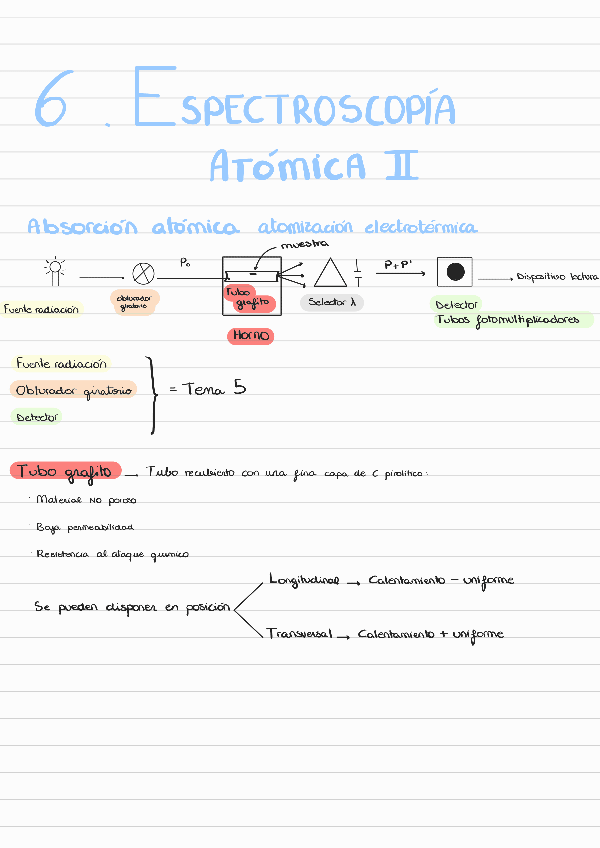 6. ESPECTROSCOPÍA
ATÓMICA II
Absorción atómica atomización electrotérmica
muestra
P₀
P+P'
Dispositivo lectura
Fuente radiación
obturador
giratorio
Tubo
grafito
Selector λ
Detector
Tubos fotomultiplicadores
Horno
Fuente radiación
Obturador giratorio
Detector
= Tema 5
Tubo grafito → Tubo recubierto con una fina capa de C pirolítico:
· Material no poroso
· Baja permeabilidad
· Resistencia al ataque químico
Se pueden disponer en posición
Longitudinal → Calentamiento - uniforme
Transversal → Calentamiento + uniforme